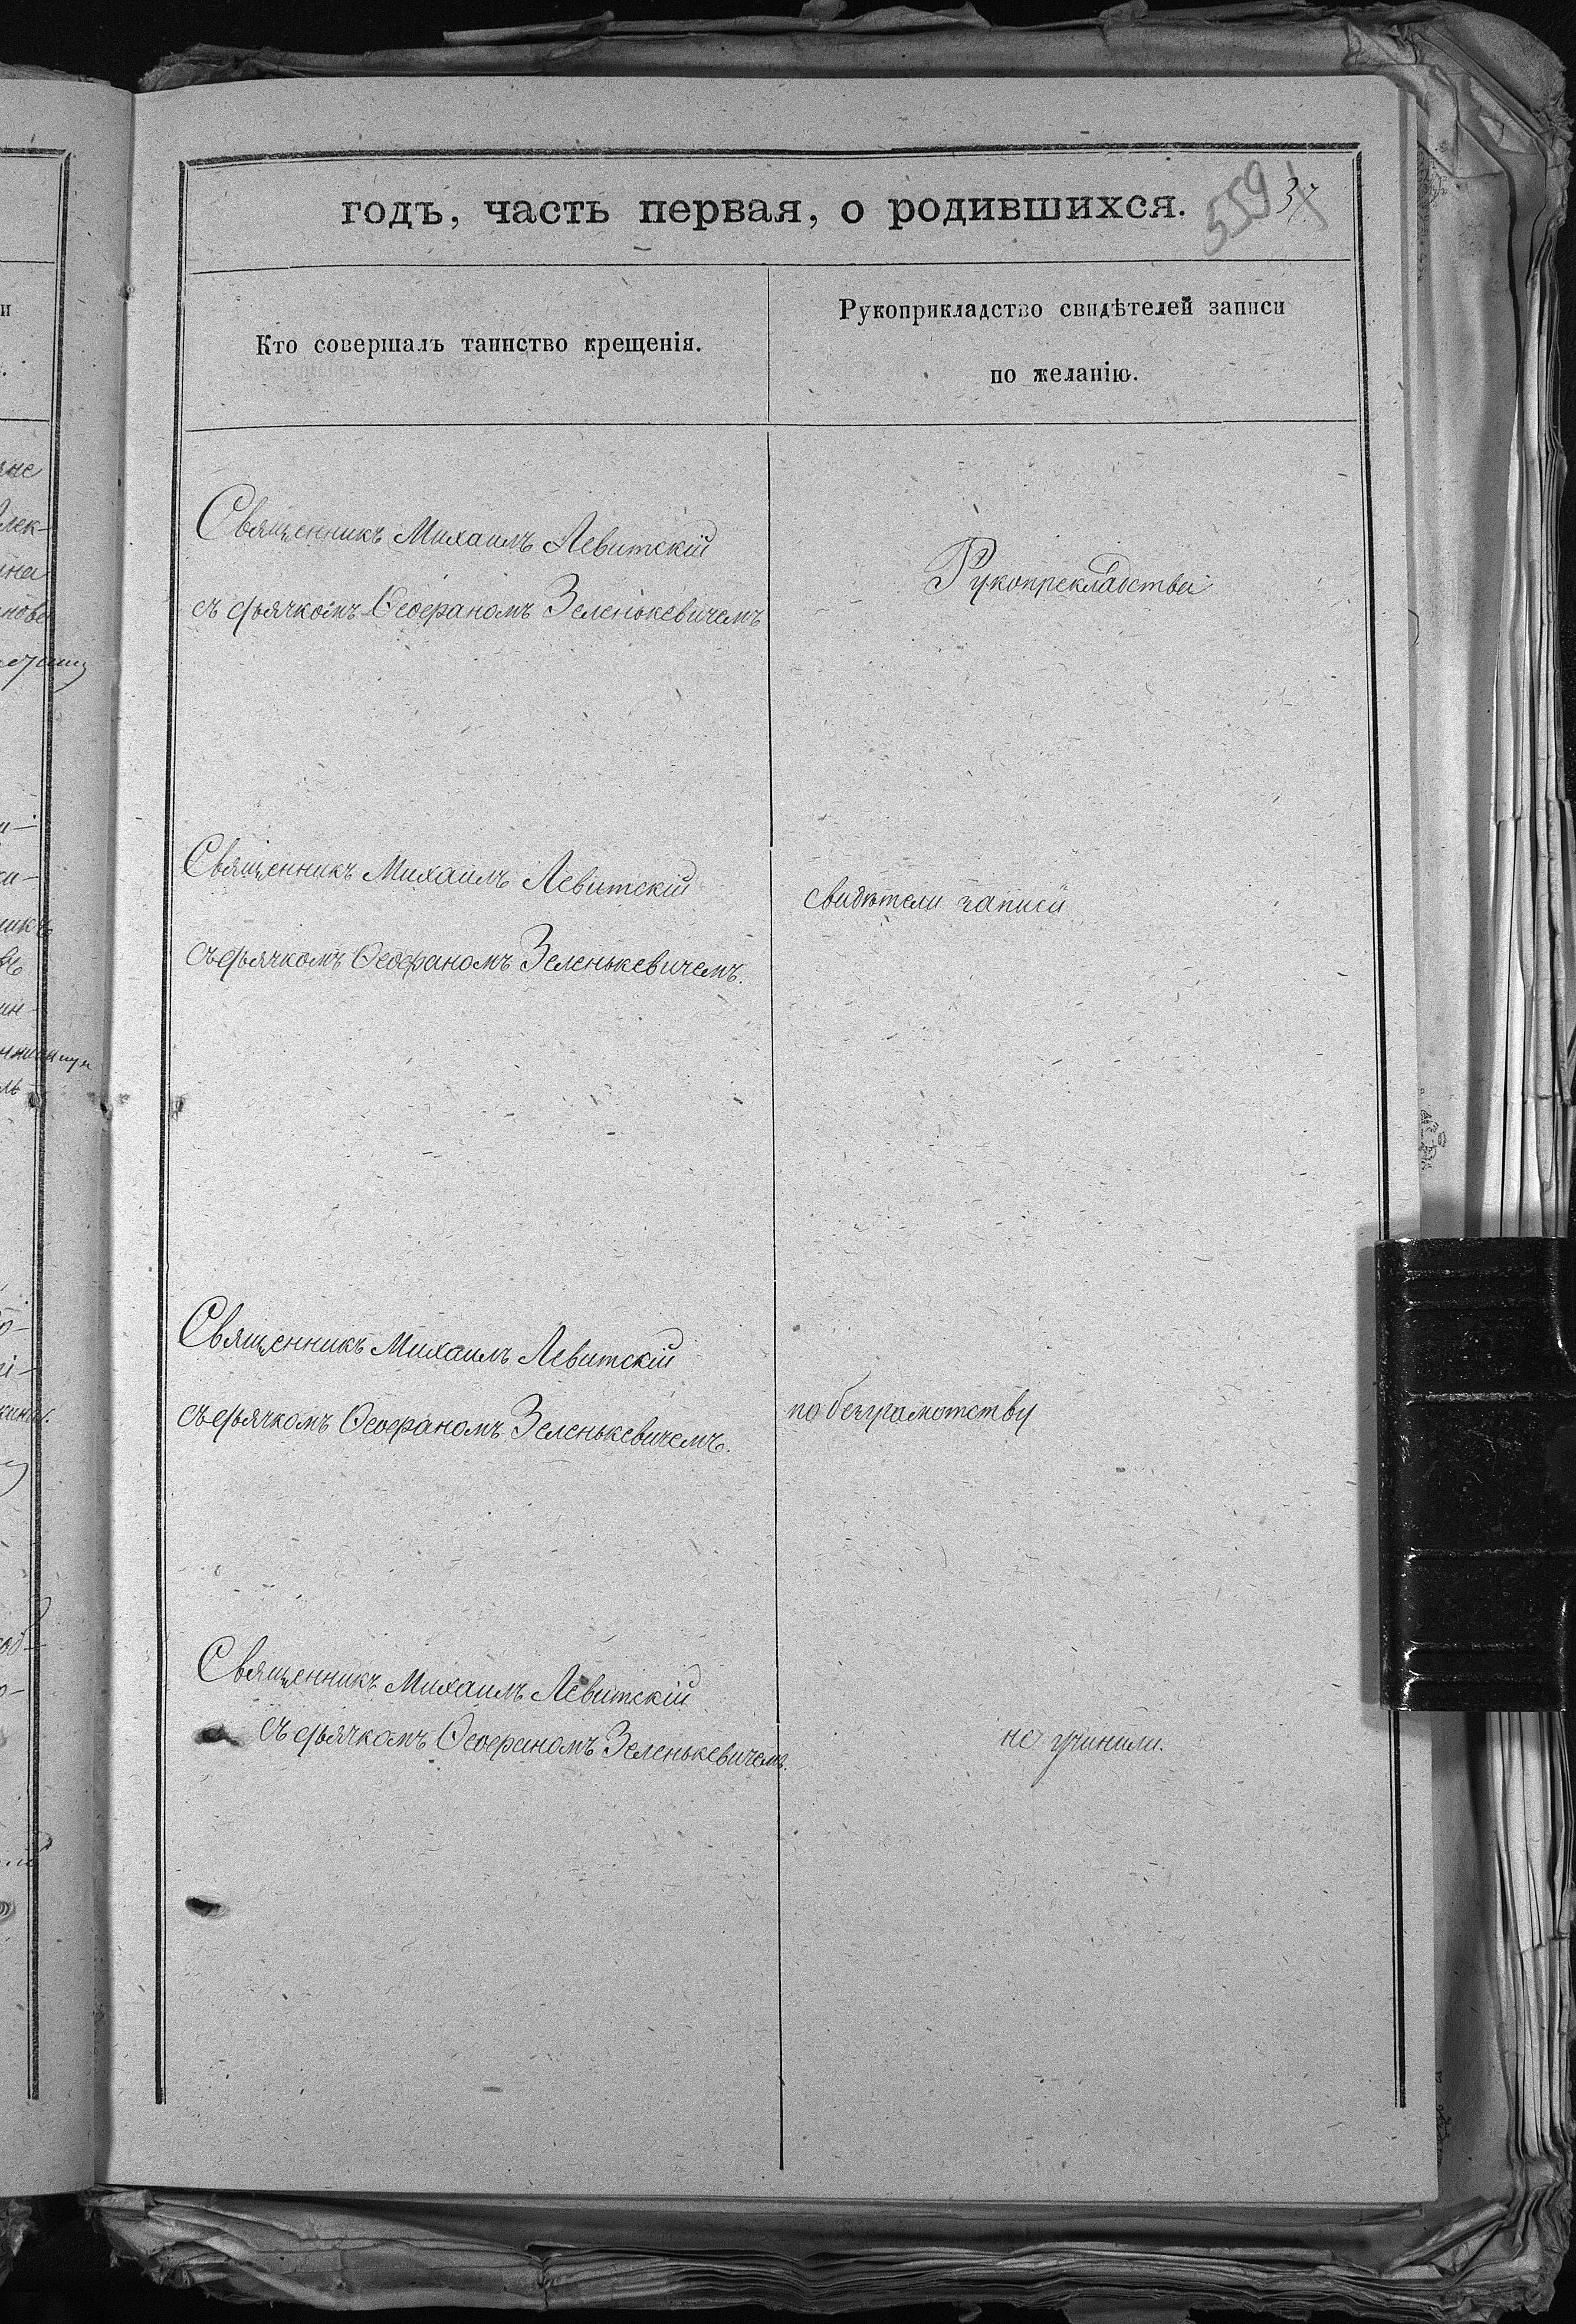 годъ, часть первая, о родившихся.
559
37
Кто совершалъ таинство крещенія.
Рукоприкладство свидѣтелей записи
по желанію.
Священникъ Михаилъ Левитскій
съ дьячкомъ Ѳеофаномъ Зеленькевичемъ
Рукопрекладства
Священникъ Михаилъ Левитскій
съ дьячкомъ Ѳеофаномъ Зеленькевичемъ.
свидѣтели записи
Священникъ Михаилъ Левитскій
съ дьячкомъ Ѳеофаномъ Зеленькевичемъ.
по безграмотству
Священникъ Михаилъ Левитскій
съ дьячкомъ Ѳеофаномъ Зеленькевичемъ.
не учинили.